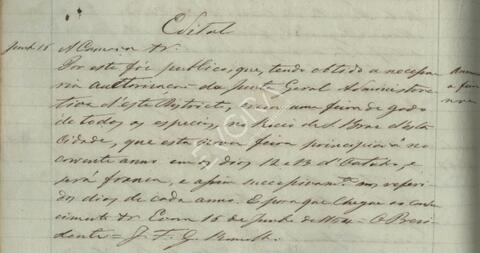 Edital
Junho 15 A Camara &c.
Por este faz publico, que, tendo obtido a necessa
ria authorisação da Junta Geral Administra
tiva d'este Districto, uma feira de gado
de todas as especies, no Rocio de S. Braz d'esta
Cidade, que esta nova feira principiará no
corrente anno em os dias 12 e 13 d'Outubro, e
será franca, e assim successivam.te nos referi
dos dias de cada anno. E para que chegue ao conhe
cimento &c. Evora 15 de Junho de O Presi
dente = J. F. G.